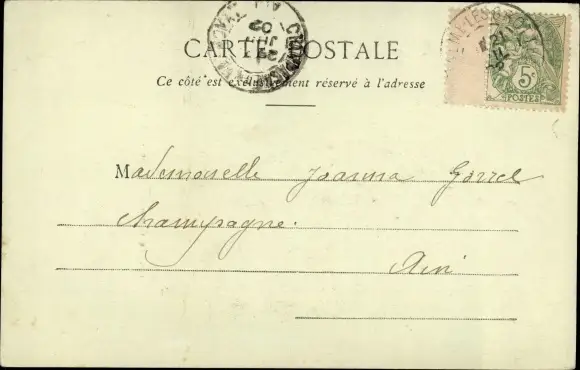 CARTE POSTALE
Ce côté est exclusivement réservé à l'adresse
5c
POSTES
Mademoiselle Joanna Gorrel
Champagne.
Ain